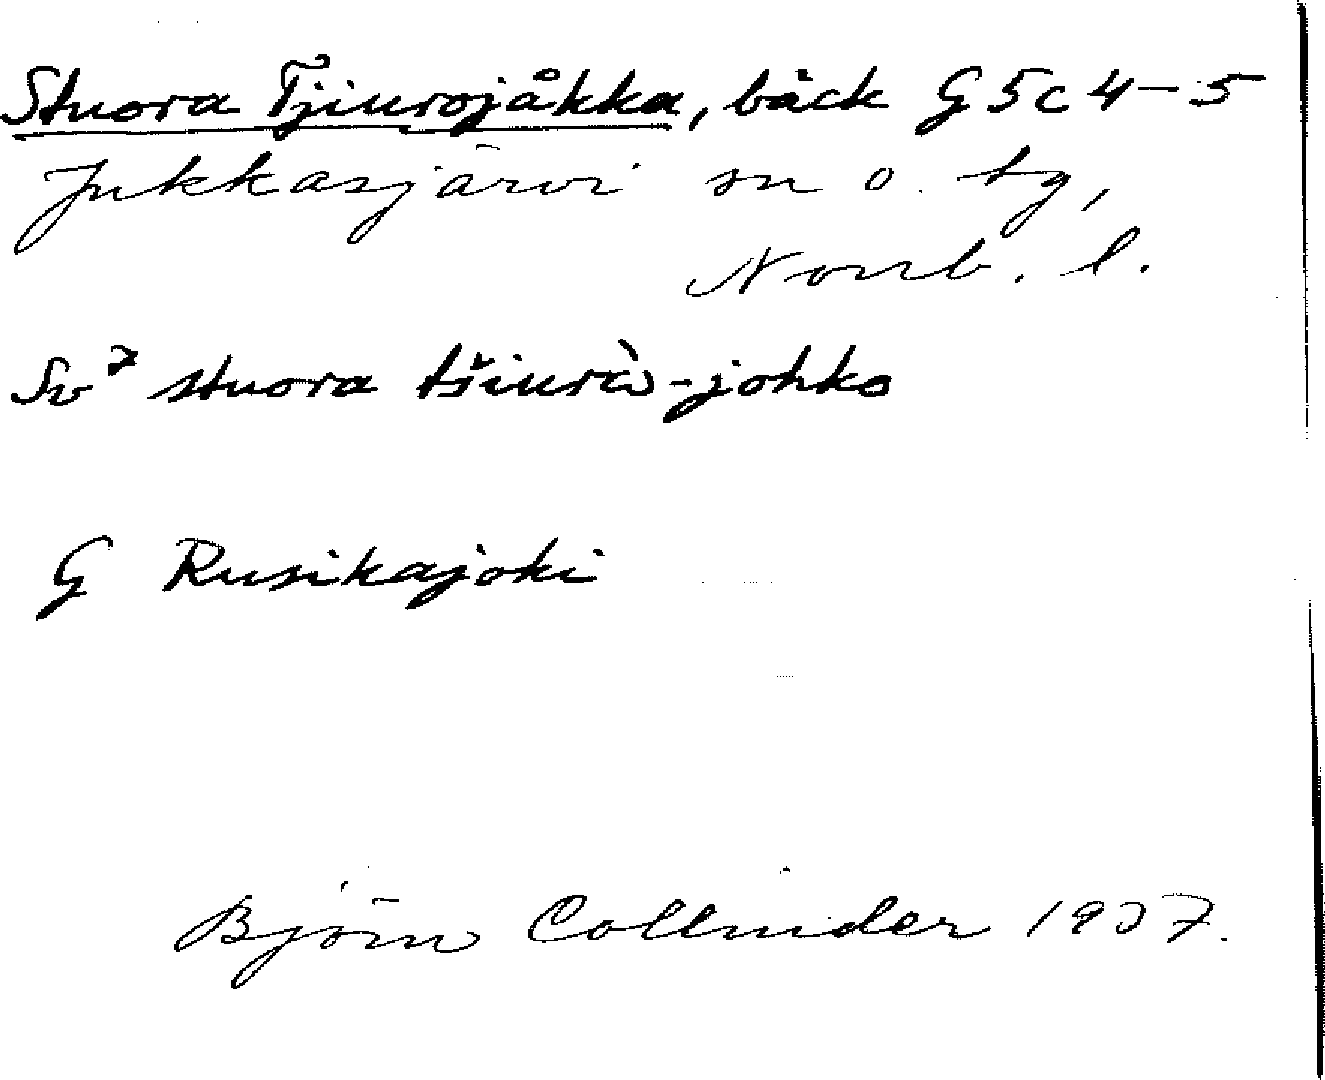 Stuora Tjiurojåkka, bäck G 5c 4-5
Jukkasjärvi sn o. tg,
Norrb. l.
Sv⁷ stuora tšiurò-johko
G Rusikajoki
Björn Collinder 1937.